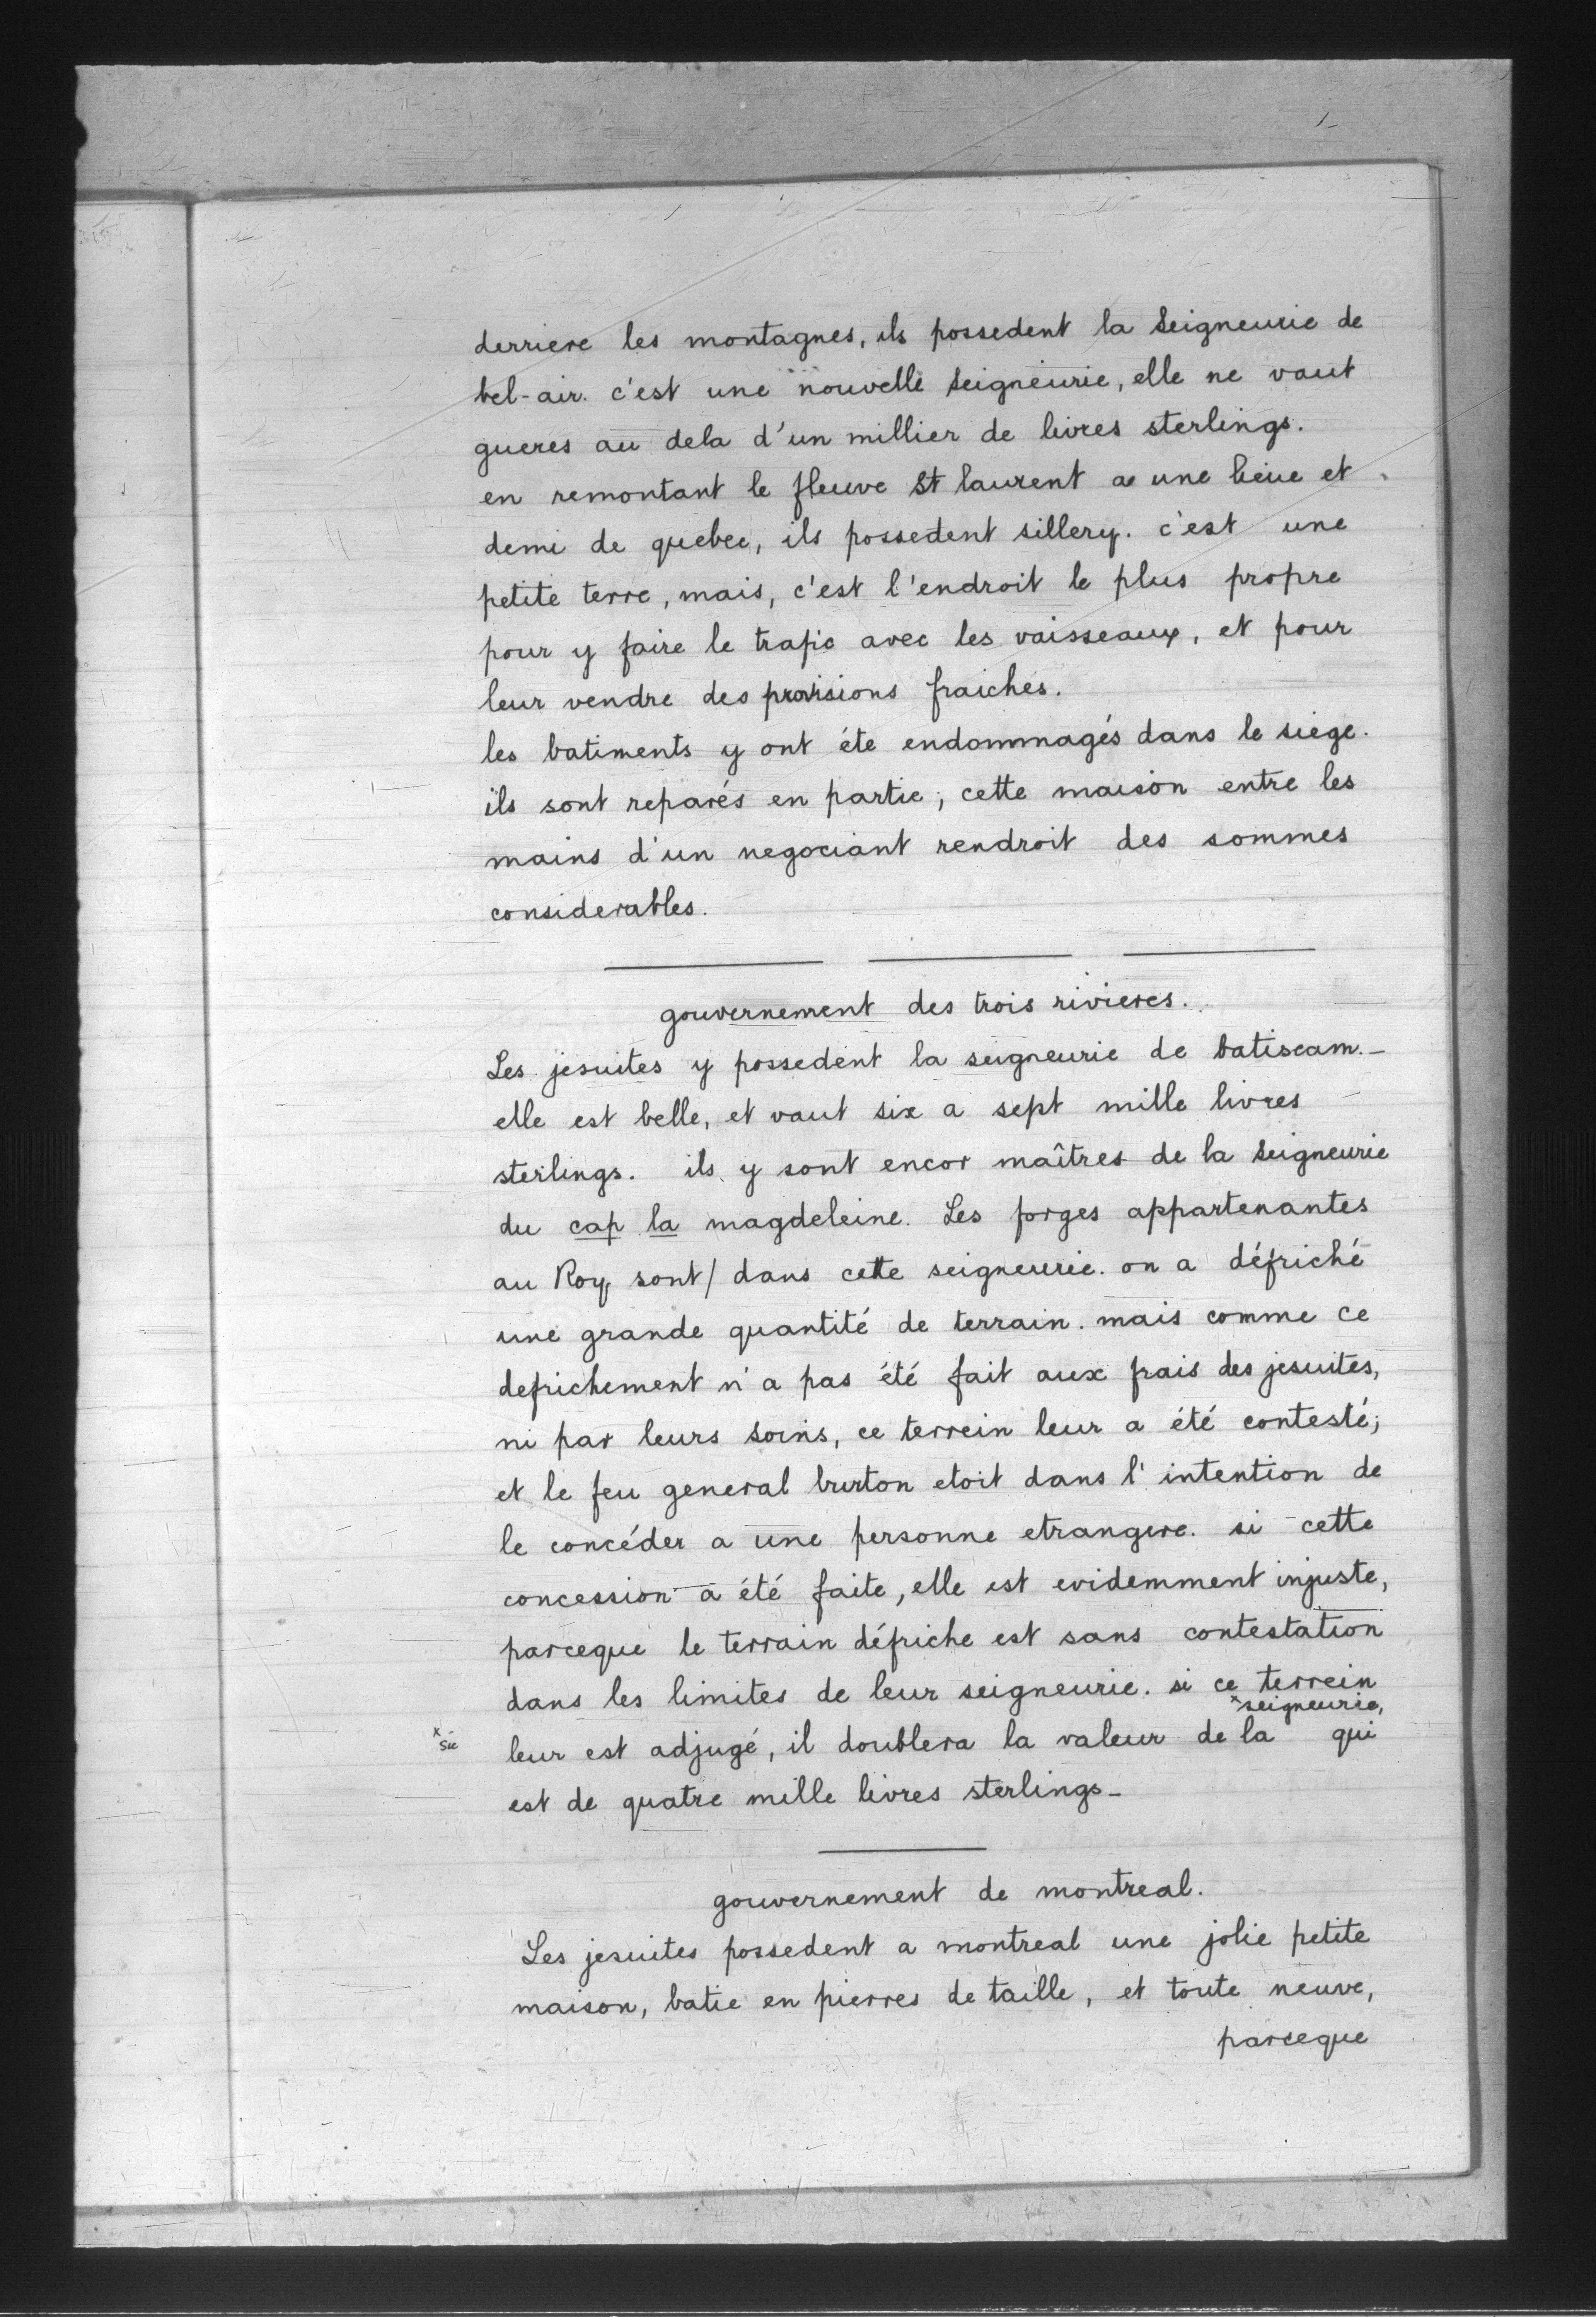 derriere les montagnes, ils possedent la Seigneurie de
bel-air. c'est une nouvelle Seigneurie, elle ne vaut
gueres au dela d'un millier de livres sterlings.
en remontant le fleuve St laurent a une lieue et
demi de quebec, ils possedent sillery. c'est une
petite terre, mais, c'est l'endroit le plus propre
pour y faire le trafic avec les vaisseaux, et pour
leur vendre des provisions fraiches.
les batiments y ont éte endommagés dans le siege.
ils sont reparés en partie; cette maison entre les
mains d'un negociant rendroit des sommes
considerables.
gouvernement des trois rivieres.
Les jesuites y possedent la seigneurie de batiscam.-
elle est belle, et vaut six a sept mille livres
sterlings. ils y sont encor maîtres de la Seigneurie
du cap la magdeleine. Les forges appartenantes
au Roy sont/ dans cette seigneurie. on a défriché
une grande quantité de terrain. mais comme ce
defrichement n'a pas été fait aux frais des jesuites,
ni par leurs Soins, ce terrein leur a été contesté;
et le feu general burton etoit dans l'intention de
le concéder a une personne etrangere. si cette
concession a été faite, elle est evidemment injuste,
parceque le terrain défriche est sans contestation
dans les limites de leur seigneurie. si ce terrein
x seigneurie,
x sic leur est adjugé, il doublera la valeur de la qui
est de quatre mille livres sterlings-
gouvernement de montreal.
Les jesuites possedent a montreal une jolie petite
maison, batie en pierres de taille, et toute neuve,
parceque